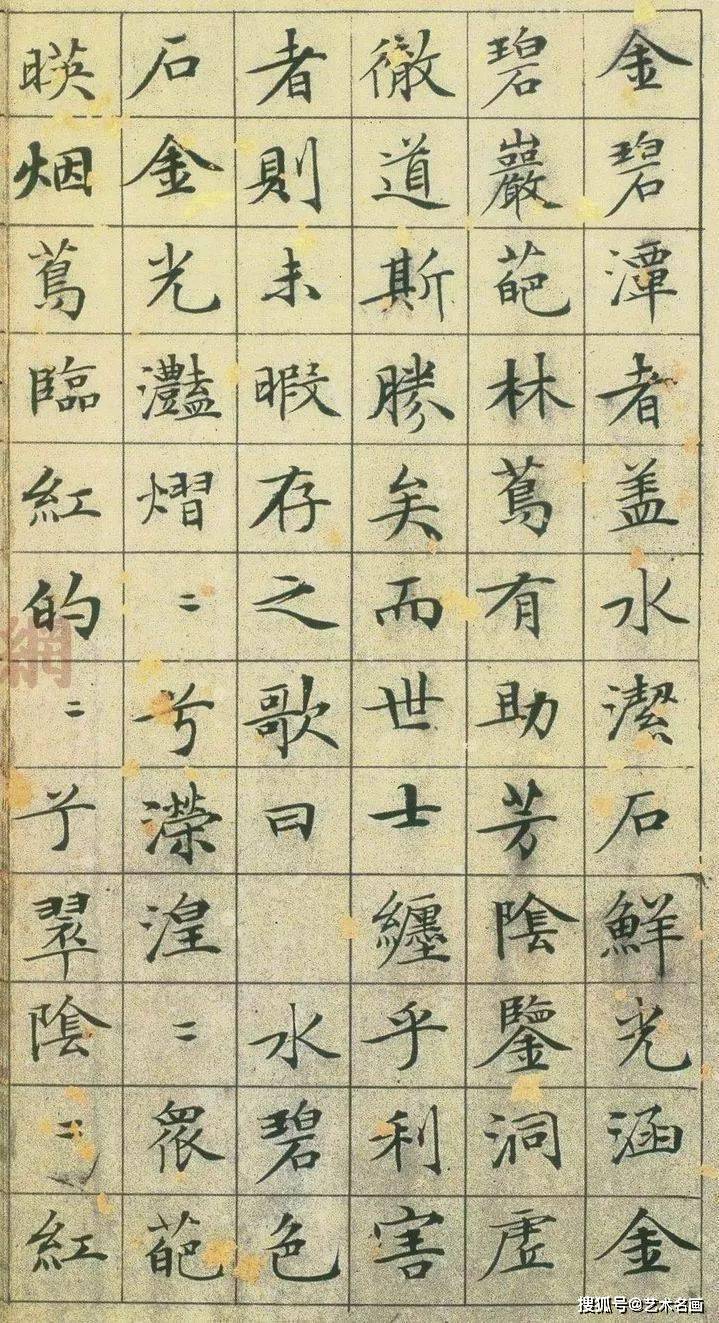 金碧潭者盖水潔石鮮光涵金
碧巖葩林蔦有助芳陰鑒洞虚
徹道斯勝矣而世士纏乎利害
者則未暇存之歌曰 水碧色
石金光灩熠〻兮濴湟〻衆葩
暎烟蔦臨紅的〻兮翠陰〻紅
網
搜狐号@艺术名画